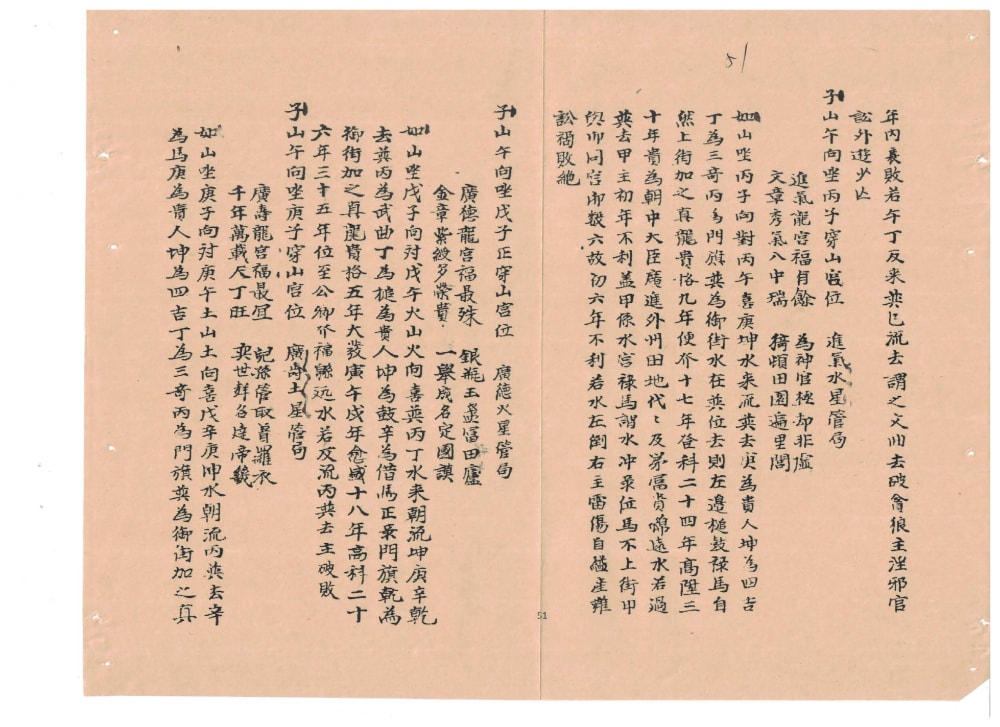 51
年內衰敗若午丁反来巽巳流去謂之文曲去破貪狼主淫邪官
訟外遊少亡
子山午向坐丙子穿山宮位 進氣水星管局
進氣龍宮福有餘 為神官極却非虛
文章秀氣八中瑞 猗頓田園遍里閭
如山坐丙子向對丙午喜庚坤水来流巽去庚為貴人坤為四吉
丁為三奇丙為門旗巽為御街水在巽位去則左邊槌鼓祿馬自
然上街加之真龍貴格九年便介十七年登科二十四年髙陞三
十年貴為朝中大臣廣進外州田地代〻及第富贵綿遠水若過
巽去甲主初年不利盖甲係水宮禄馬謂水冲录位馬不上街甲
與卯同宮卯数六故初六年不利若水左倒右主雷傷自縊産難
訟禍敗絶
子山午向坐戊子正穿山宮位 廣德火星管局
廣德龍宮福最殊 銀瓶玉盞富田廬
金章紫綬多榮貴 一舉成名定國謨
如山坐戊子向対戊午火山火向喜巽丙丁水来朝流坤庚辛乾
去巽丙為武曲丁為槌為貴人坤為鼓辛為借馬正录門旗乾為
御街加之真龍貴格五年大發寅午戌年愈盛十八年高科二十
六年三十五年位至公卿介福縣远水若反流丙巽去主破敗
子山午向坐庚子穿山宮位 廣壽土星管局
廣壽龍宮福最宜 兒孫管取着羅衣
千年萬載尺丁旺 奕世群名達帝畿
如山坐庚子向対庚午土山土向喜戊辛庚坤水朝流丙巽去辛
為馬庚為貴人坤為四吉丁為三奇丙為門旗巽為御街加之真
51